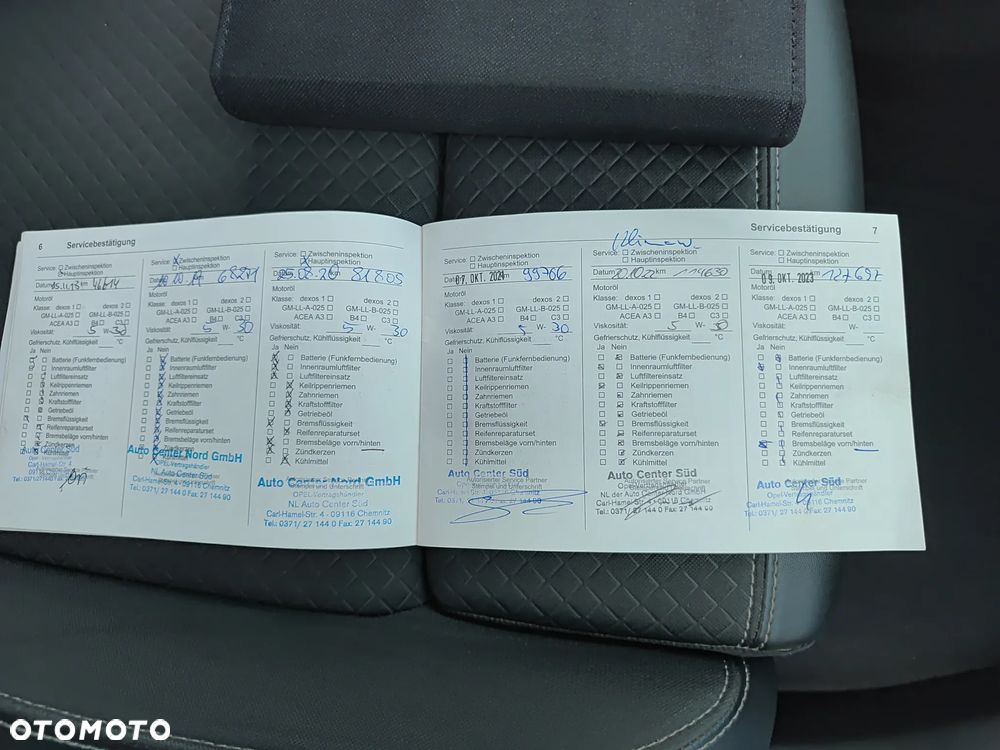 6 Servicebestätigung
Service: Zwischeninspektion
Hauptinspektion
Datum km
Motoröl
Klasse: dexos 1 dexos 2
GM-LL-A-025 GM-LL-B-025
ACEA A3 B4 C3
Viskosität: 5 W- 30
Gefrierschutz, Kühlflüssigkeit °C
Ja Nein
Batterie (Funkfernbedienung)
Innenraumluftfilter
Luftfiltereinsatz
Keilrippenriemen
Zahnriemen
Kraftstofffilter
Getriebeöl
Bremsflüssigkeit
Reifenreparaturset
Bremsbeläge vorn/hinten
Zündkerzen
Service: Zwischeninspektion
Hauptinspektion
Motoröl
Klasse: dexos 1 dexos 2
GM-LL-A-025 GM-LL-B-025
ACEA A3 B4 C3
Viskosität: 5 W- 30
Gefrierschutz, Kühlflüssigkeit °C
Ja Nein
Batterie (Funkfernbedienung)
Innenraumluftfilter
Luftfiltereinsatz
Keilrippenriemen
Zahnriemen
Kraftstofffilter
Getriebeöl
Bremsflüssigkeit
Reifenreparaturset
Bremsbeläge vorn/hinten
Zündkerzen
Auto Center Nord GmbH
OPEL-Vertragshändler
NL Auto Center Süd
Carl-Hamel-Str. 4 - 09116 Chemnitz
Tel.: 0371/ 27 144 0 Fax: 27 144 90
Service: Zwischeninspektion
Hauptinspektion
81805
Motoröl
Klasse: dexos 1 dexos 2
GM-LL-A-025 GM-LL-B-025
ACEA A3 B4 C3
Viskosität: 5 W- 30
Gefrierschutz, Kühlflüssigkeit °C
Ja Nein
Batterie (Funkfernbedienung)
Innenraumluftfilter
Luftfiltereinsatz
Keilrippenriemen
Zahnriemen
Kraftstofffilter
Getriebeöl
Bremsflüssigkeit
Reifenreparaturset
Bremsbeläge vorn/hinten
Zündkerzen
Kühlmittel
Auto Center Nord GmbH
OPEL-Vertragshändler
NL Auto Center Süd
Carl-Hamel-Str. 4 - 09116 Chemnitz
Tel.: 0371/ 27 144 0 Fax: 27 144 90
Servicebestätigung 7
Service: Zwischeninspektion
Hauptinspektion
07. OKT. 2021 km 99766
Motoröl
Klasse: dexos 1 dexos 2
GM-LL-A-025 GM-LL-B-025
ACEA A3 B4 C3
Viskosität: 5 W- 30
Gefrierschutz, Kühlflüssigkeit °C
Ja Nein
Batterie (Funkfernbedienung)
Innenraumluftfilter
Luftfiltereinsatz
Keilrippenriemen
Zahnriemen
Kraftstofffilter
Getriebeöl
Bremsflüssigkeit
Reifenreparaturset
Bremsbeläge vorn/hinten
Zündkerzen
Kühlmittel
Auto Center Süd
Autorisierter Service Partner
Stempel und Unterschrift
Service: Zwischeninspektion
Hauptinspektion
Datum 20.10.22 km 114630
Motoröl
Klasse: dexos 1 dexos 2
GM-LL-A-025 GM-LL-B-025
ACEA A3 B4 C3
Viskosität: 5 W- 30
Gefrierschutz, Kühlflüssigkeit °C
Ja Nein
Batterie (Funkfernbedienung)
Innenraumluftfilter
Luftfiltereinsatz
Keilrippenriemen
Zahnriemen
Kraftstofffilter
Getriebeöl
Bremsflüssigkeit
Reifenreparaturset
Bremsbeläge vorn/hinten
Zündkerzen
Kühlmittel
Auto Center Süd
NL der Auto Center Nord GmbH
Carl-Hamel-Str. 4 - 09116 Chemnitz
Tel.: 0371/ 27 144 0 Fax: 27 144 90
Service: Zwischeninspektion
Hauptinspektion
Datum 09. OKT. 2023 km 127697
Motoröl
Klasse: dexos 1 dexos 2
GM-LL-A-025 GM-LL-B-025
ACEA A3 B4 C3
Viskosität: W-
Gefrierschutz, Kühlflüssigkeit °C
Ja Nein
Batterie (Funkfernbedienung)
Innenraumluftfilter
Luftfiltereinsatz
Keilrippenriemen
Zahnriemen
Kraftstofffilter
Getriebeöl
Bremsflüssigkeit
Reifenreparaturset
Bremsbeläge vorn/hinten
Zündkerzen
Kühlmittel
Auto Center Süd
Carl-Hamel-Str. 4 - 09116 Chemnitz
Tel.: 0371/ 27 144 0 Fax: 27 144 90
OTOMOTO